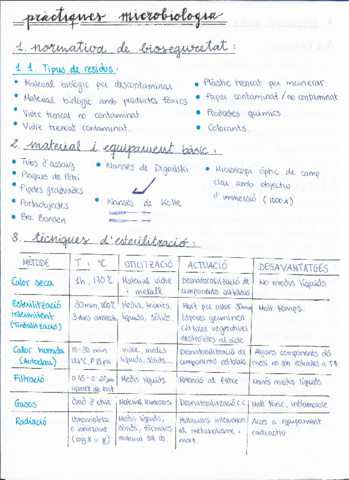 pràctiques microbiologia
1. normativa de bioseguretat :
1.1. Tipus de residus :
• Material biològic per descontaminar
• Material biològic amb productes tòxics
• Vidre trencat no contaminat
• Vidre trencat contaminat.
• Plàstic trencat per incinerar.
• Paper contaminat / no contaminat
• Productes químics
• Colorants.
2. material i equipament bàsic :
• Tubs d'assaig
• Plaques de Petri
• Pipetes graduades
• Portaobjectes
• Bec Bunsen
• Nanses de Digralski
• Nanses de Kolle
• Microscopi òptic de camp
clau amb objectiu
d'immersió (100x)
3. tècniques d'esterilització :
MÈTODE T i °C UTILITZACIÓ ACTUACIÓ DESAVANTATGES
Calor seca 1h, 170°C Material vidre
i metall Desnaturalització de
components cel·lulars No medis líquids
Esterilització
intermitent
(Tindalització) 30min, 100°C
3 dies Medis, teixits,
líquids, sòlids. Mort per calor 30min
Espores germinen
cèl·lules vegetatives
destruïdes al cicle Molt temps.
Calor humida
(Autoclau) 15-30 min
121°C, P 15 psi Vidre, medis
líquids, sòlids... Desnaturalització de
components cel·lulars. Alguns components del
medi no son estables a T↑.
Filtració 0'45 - 0'22 μm Medis líquids Retenció al filtre Només medis líquids
Gasos Òxid d'etilè Material termosensi. Desnaturalització c.c. Molt tòxic, inflamable.
Radiació Ultravioleta
o ionitzant
(raig X o γ) Medis líquids,
sòlids, fàrmacs
material sol ús. Mutacions intervenen
al metabolisme i
mort. Accés a equipament
radioactiu